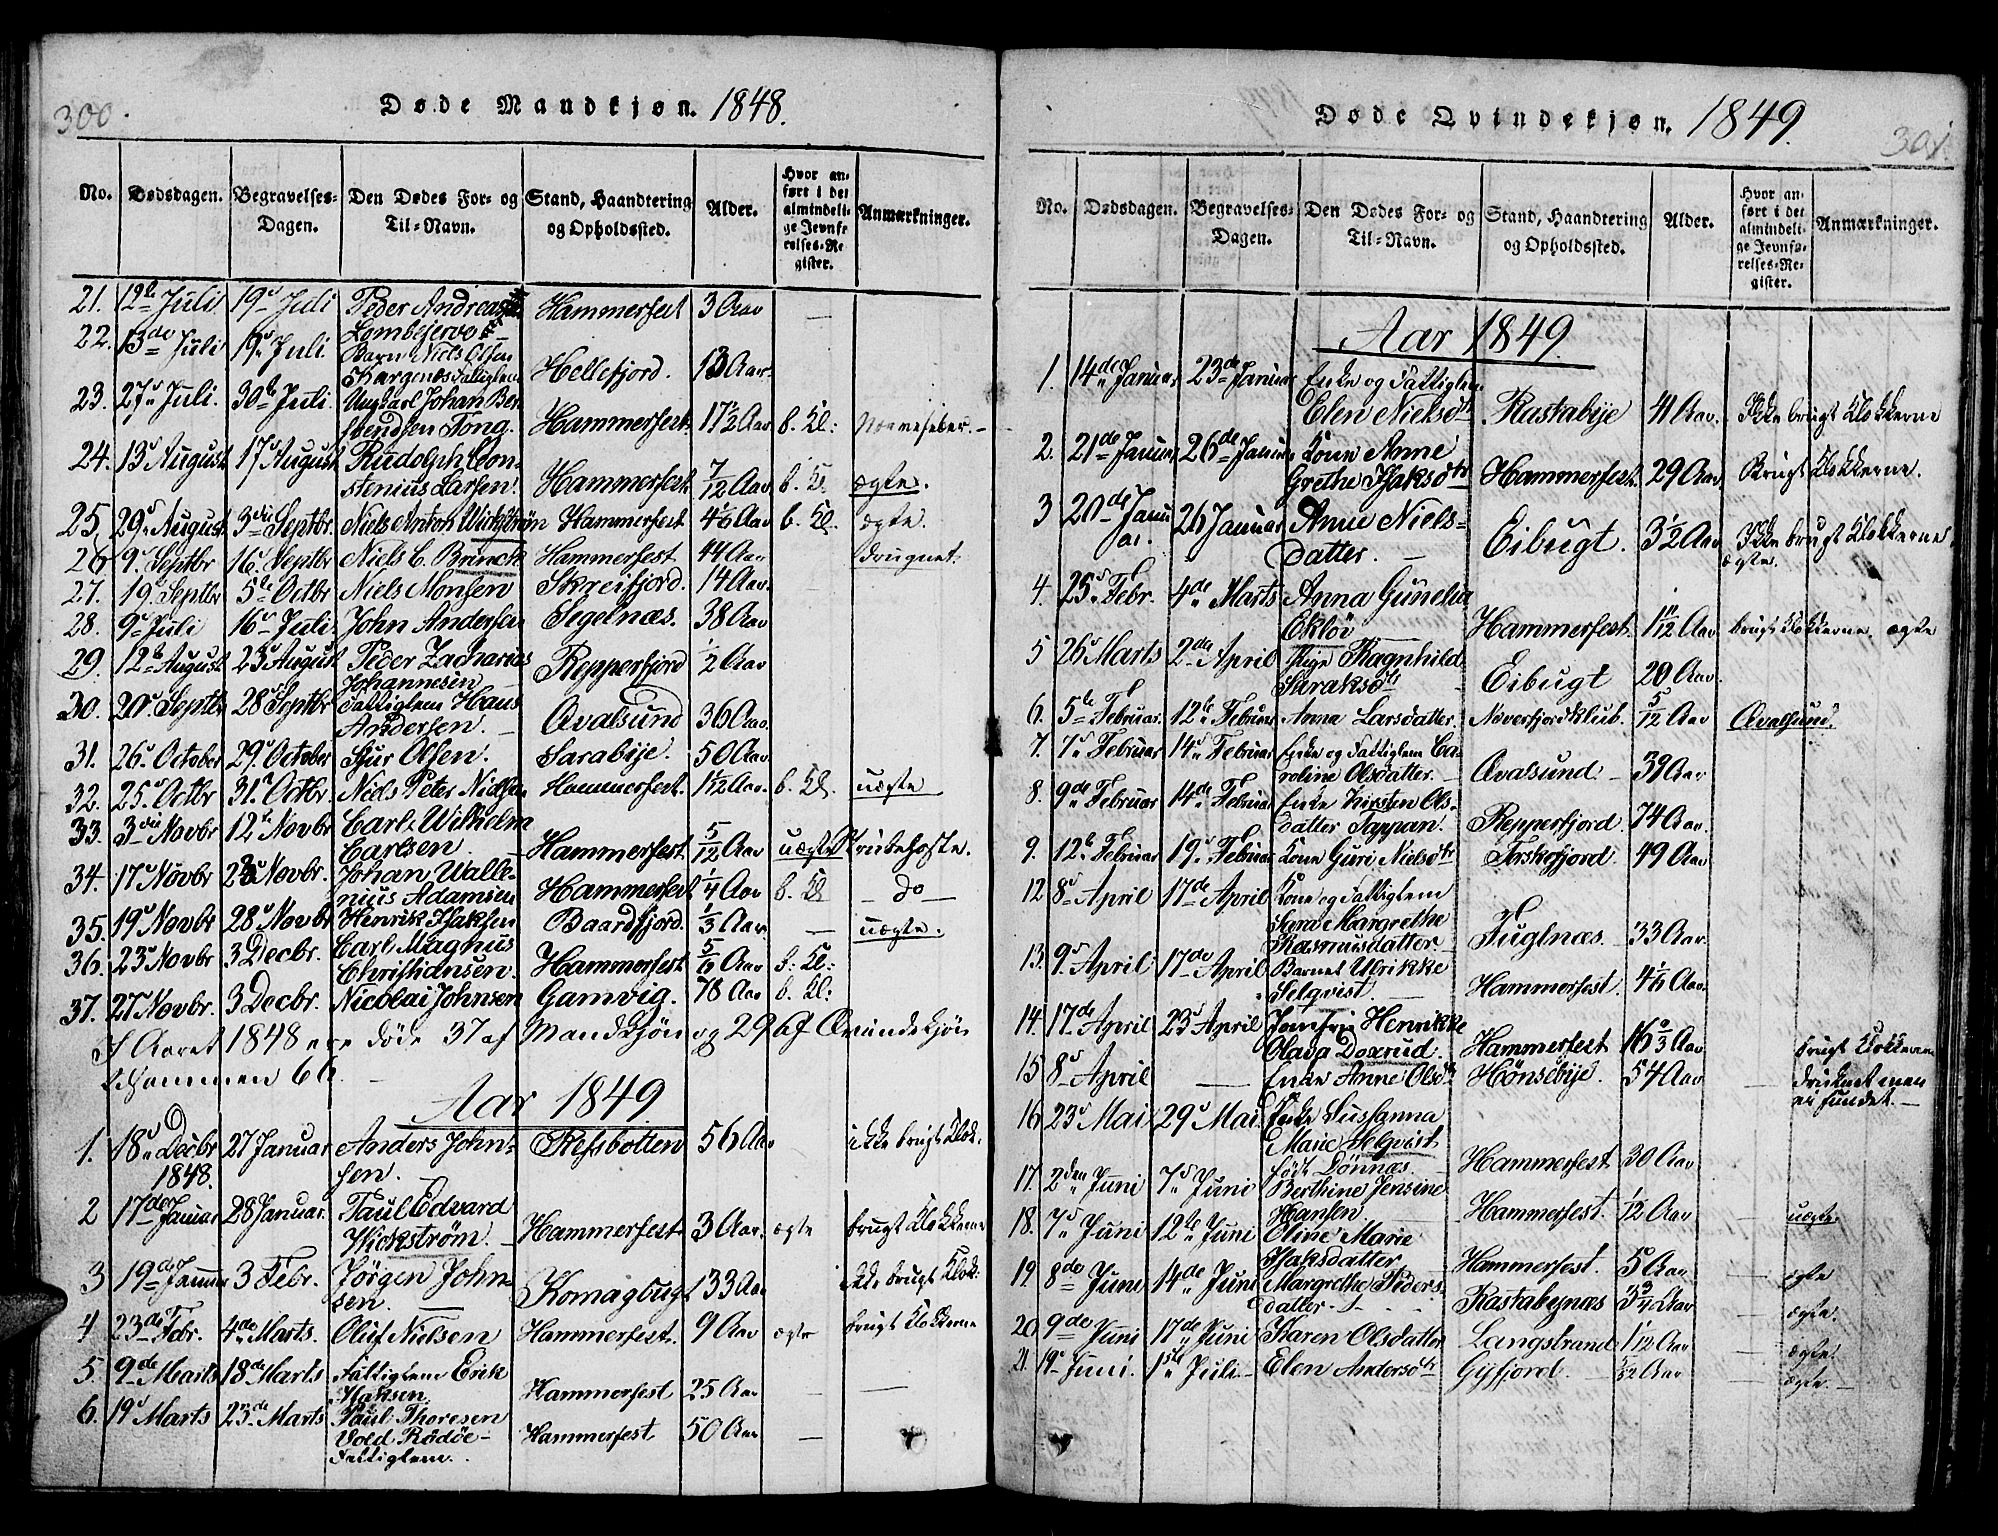 300.
Døde Mandkjøn. 1848.
No. Dødsdagen. Begravelses-Dagen. Den Dødes For- og Til-Navn. Stand, Haandtering og Opholdssted. Alder. Hvor anført i det almindelige Jevnførelses-Register. Anmærkninger.
21. 12te Juli 19de Juli Peder Andreas Hammerfest 3 Aar —
Lombejervo
22. 13de Juli 19de Juli. Barn Niels Olsen
Kargenæs Fattiglem Hellefjord. 13 Aar
23. 27de Juli. 30te Juli. Ungkarl Johan Ber-
Hammerfest 17½ Aar b. Kl: Nervefeber. —
endsen Tong.
24. 13de August 17de August Rudolph Con-
stenius Larsen. Hammerfest 7/12 Aar b. Kl ægte.
25. 29de August 3die Septbr. Niels Anton Wickstrøm Hammerfest 4 1/6 Aar b. Kl. ægte.
26 9de Septbr 16de Septbr Niels C. Brinck Hammerfest 44 Aar druknet.
27. 19de Septbr 5te Octbr Niels Monsen Skreifjord. 14 Aar
28. 9de Juli 16de Juli. John Andersen Segelnæs. 38 Aar
29. 12te August 23de August Peder Zacharias Repperfjord ½ Aar
Johannesen
30. 20de Septbr 28de Septbr Fattiglem Hans
Andersen. Qvalsund 36 Aar
31. 26de October 29de October Sjur Olsen. Sarabye. 50 Aar
32. 25de Octbr 31te Octbr Niels Peter Nielsen Hammerfest. 1 1/12 Aar b. Kl. uægte
33. 3die Novbr 12te Novbr Carl Wilhelm
Carlsen. Hammerfest 5/12 Aar uægte Strubehoste.
34. 17de Novbr Novbr. Johan Walle-
nius Adamsen Hammerfest ¼ Aar b. Kl — do —
35. 19de Novbr 28de Novbr Henrik Isaksen Baardfjord. 1/3 Aar. — uægte.
36. 23de Novbr 3 Decbr. Carl Magnus
Christiansen. Hammerfest Aar b: Kl:
37. 27de Novbr. 3 Decbr. Nicolai Johnsen Gamvig. 78 Aar b. Kl:
I Aaret 1848 ere døde 37 af Mandkjøn og 29 af Qvindekjøn
Tilsammen 66. —
Aar 1849
1. 18de Decbr 27 Januar Anders John- Refsbotten 56 Aar ikke brugt Klok.
1848. sen. —
2 17de Januar 28 Januar. Paul Edvard
Wickstrøm. Hammerfest 3 Aar. ægte brugt Klokkerne
3 19de Januar 3 Febr. Jørgen John-
sen. — Komagbugt 33 Aar Ikke brugt Klok:
4 23de Fbr. 4de Marts. Oluf Nielsen Hammerfest. 9 Aar ægte brugt Klokkerne
5. 9de Marts 18de Marts Fattiglem Erik
Isaksen. Hammerfest 25 Aar — —
6. 19de Marts 23de Marts Paul Thoresen
Vold Rødøe — Hammerfest 50 Aar —
Fattiglem.
Døde Qvindekjøn. 1849.
301.
No. Dødsdagen. Begravelses-Dagen. Den Dødes For- og Til-Navn. Stand, Haandtering og Opholdssted. Alder. Hvor anført i det almindelige Jevnførelses-Register. Anmærkninger.
Aar 1849.
1. 14de Januar 23de Januar Enke og Fattiglem
Elen Nielsdtr Rastabye 41 Aar. Ikke brugt Klokkerne
2. 21de Januar 26de Januar Kone Anne
Grethe Isaksdtr Hammerfest. 29 Aar Brugt Klokkerne.
3 20de Janu
ar. 26 Januar Anne Niels-
datter. — Eibugt. 3½ Aar Ikke brugt Klokkerne
ægte.
4. 25de Febr. 4de Marts Anna Gunelia
Ekløv Hammerfest. 1 11/12 Aar brugt Klokkerne. ægte
5 26de Marts 2de April Pige Ragnhild
Saraksdtr Eibugt 20 Aar
6. 5te Februar. 12te Februar Anna Larsdatter. Noverfjordklub. 5/12 Aar Qvalsund.
7. 7de Februar 14de Februar Enke og Fattiglem Ca-
roline Olsdatter. — Qvalsund — 39 Aar
8. 9de Februar 14de Februar Enke Kirsten Ols-
datter Tappan. Repperfjord. 74 Aar
9. 12te Februar 19de Februar Kone Guri Nielsdtr Torskefjord 49 Aar
12 8de April 17de April Kone og Fattiglem
Sara Margrethe
Rasmusdatter. Fuglnæs — 33 Aar.
13. 9de April 17de April Barnet Ulrikke
Selqvist. — Hammerfest. 4 1/3 Aar.
14. 17de April 23de April Jomfru Henrikke
Olava Doxrud. Hammerfest 16 2/3 Aar brugt Klokkerne
15 8de April — Enke Anne Olsdtr Hønsebye. 54 Aar — druknet men
ei fundet. —
16 23de Mai 29de Mai. Enke Susanna
Marie Selqvist
født Dønnæs. — Hammerfest 30 Aar
17. 2den Juni 7de Juni Berthine Jensine
Hansen — Hammerfest. 1/12 Aar — uægte.
18. 7de Juni 12te Juni Eline Marie
Isaksdatter — Hammerfest. 5 Aar — ægte
19 8de Juni 14de Juni Margrethe Peders-
datter. — Rastabynæs 3¾ Aar — ægte.
20 9de Juni 17de Juni Karen Olsdatter Langstrand 1 1/12 Aar — ægte.
21. 19de Juni. 1ste Juli. — Elen Andersdtr Gyfjord. — Aar — ægte. —